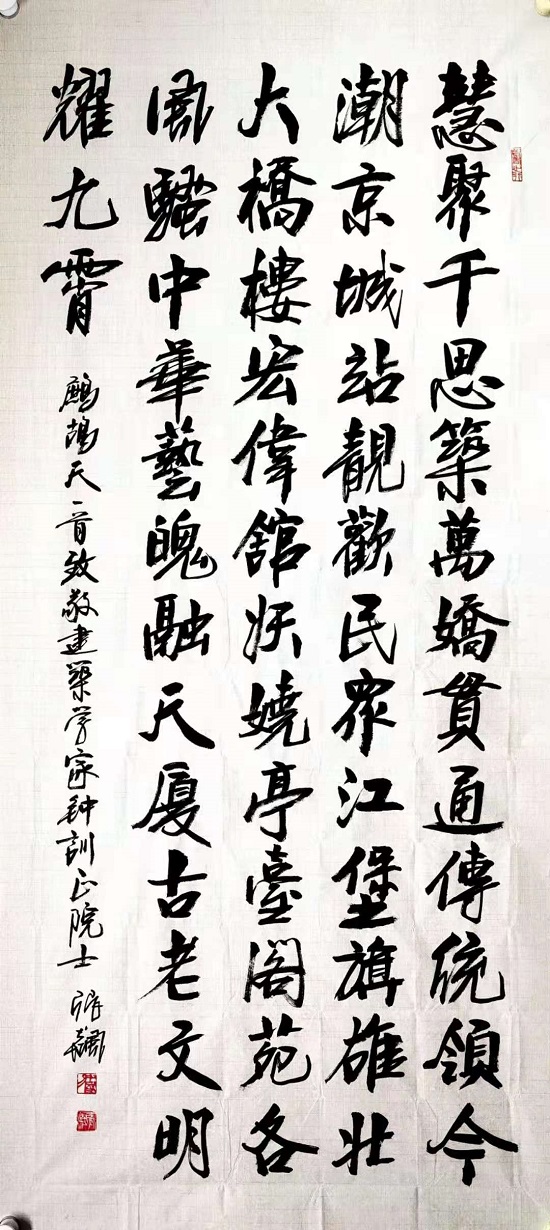 慧聚千思築萬嬌貫通傳統領今
潮京城站靚歡民眾江堡旗雄壯
大橋樓宏偉館妖嬈亭臺閣苑各
風騷中華藝魄融天廈古老文明
耀九霄
鷓鴣天一首致敬建築学家钟訓正院士 張飆